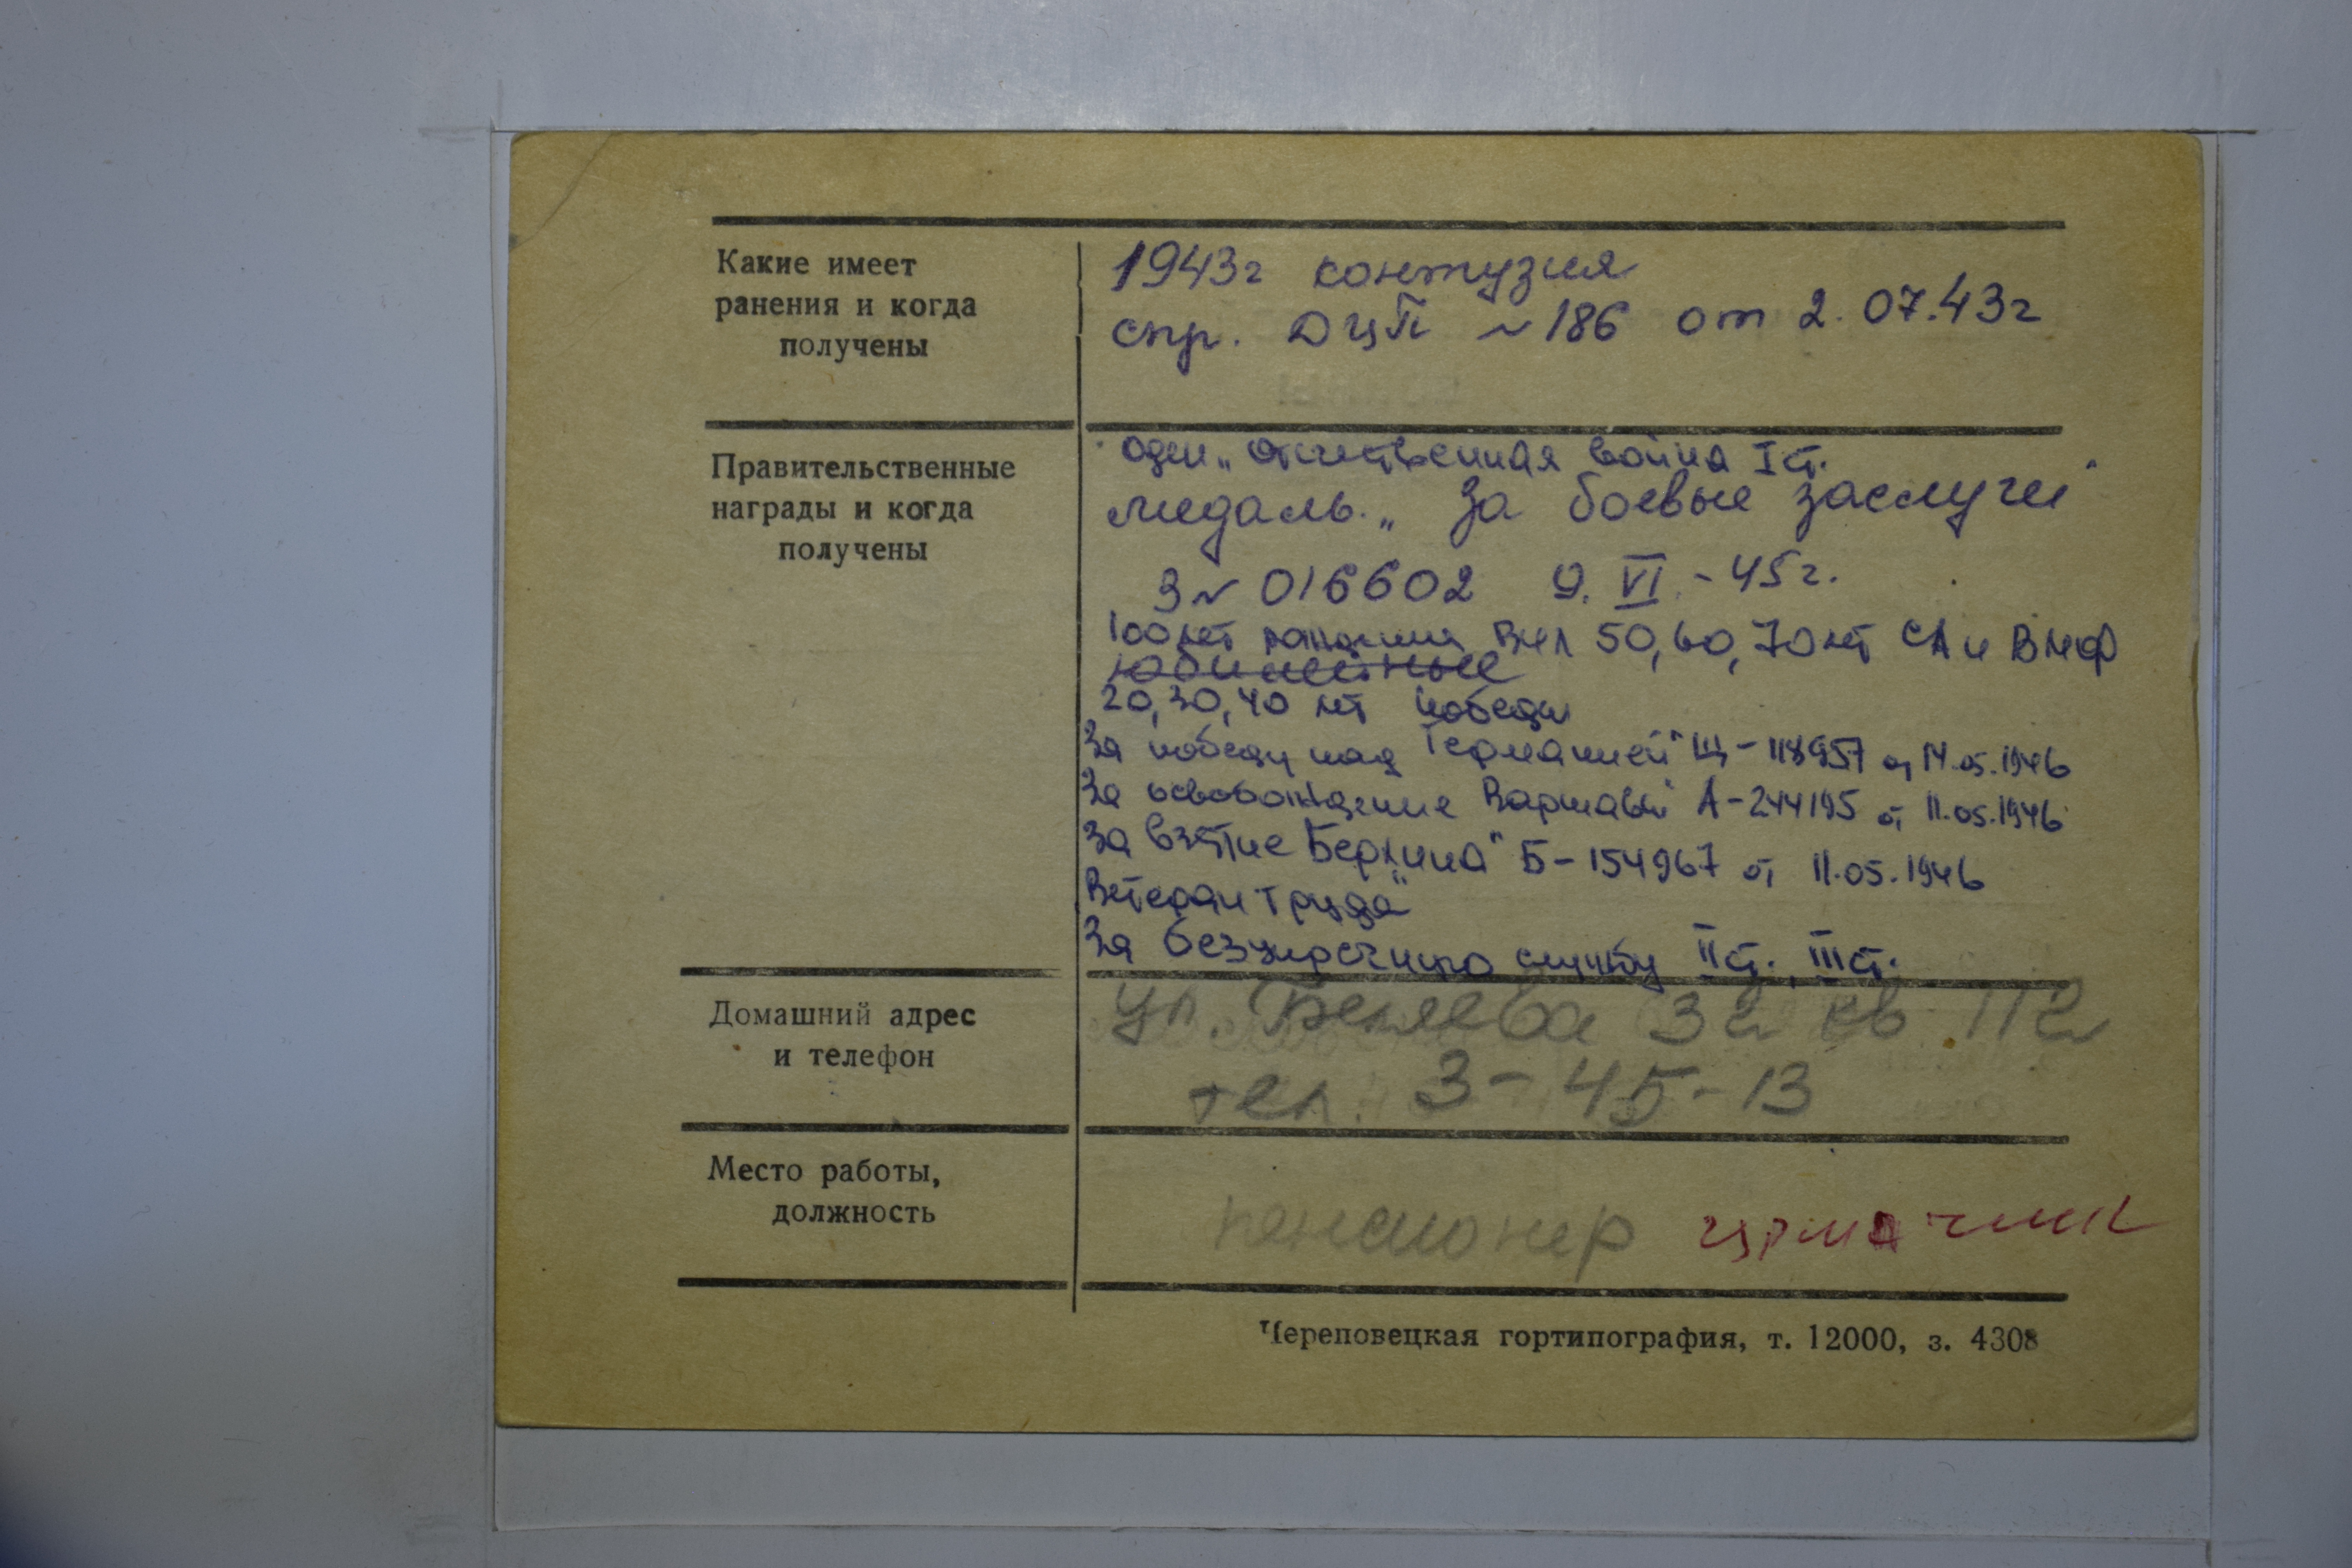 Какие имеет
ранения и когда
получены
1943г контузия
спр. ДЦП № 186 от 2.07.43г
Правительственные
награды и когда
получены
Отечественная война I ст.
медаль „За боевые заслуги"
З № 016602 9.VI-45г.
100 лет рождения ВИЛ 50, 60, 70 лет СА и ВМФ
юбилейные
20, 30, 40 лет победы
За победу над Германией" Щ-118957 от 14.05.1946
За освобождение Варшавы" А-244195 от 11.05.1946
За взятие Берлина" Б-154967 от 11.05.1946
Ветеран труда"
За безупречную службу II ст., III ст.
Домашний адрес
и телефон
ул. Беляева 32 кв 112
тел. 3-45-13
Место работы,
должность
пенсионер
Череповецкая гортипография, т. 12000, з. 4308